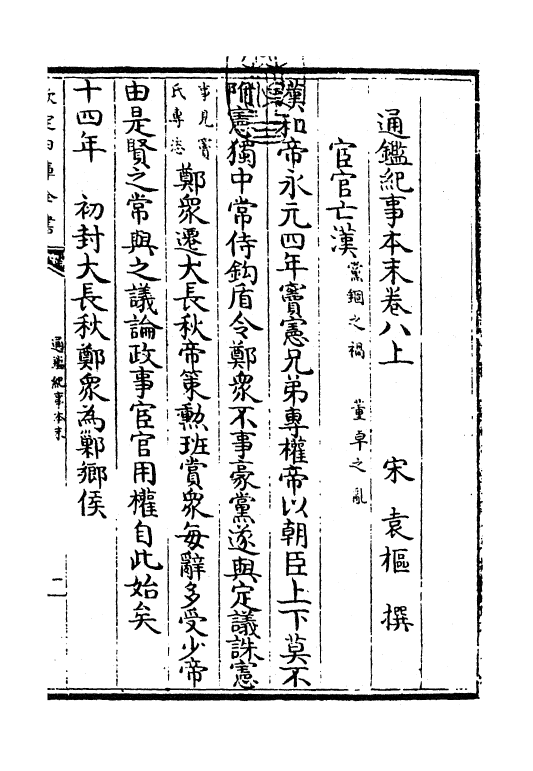 通鑑紀事本末卷八上　宋　袁樞　撰
宦官亡漢黨錮之禍　董卓之亂
漢和帝永元四年竇憲兄弟專權帝以朝臣上下莫不
附憲獨中常侍鈎盾令鄭衆不事豪黨遂與定議誅憲
事見竇氏專恣鄭衆遷大長秋帝策勲班賞衆每辭多受少帝
由是賢之常與之議論政事宦官用權自此始矣
十四年　初封大長秋鄭衆為鄛鄉侯
欽定四庫全書
通鑑紀事本末
二